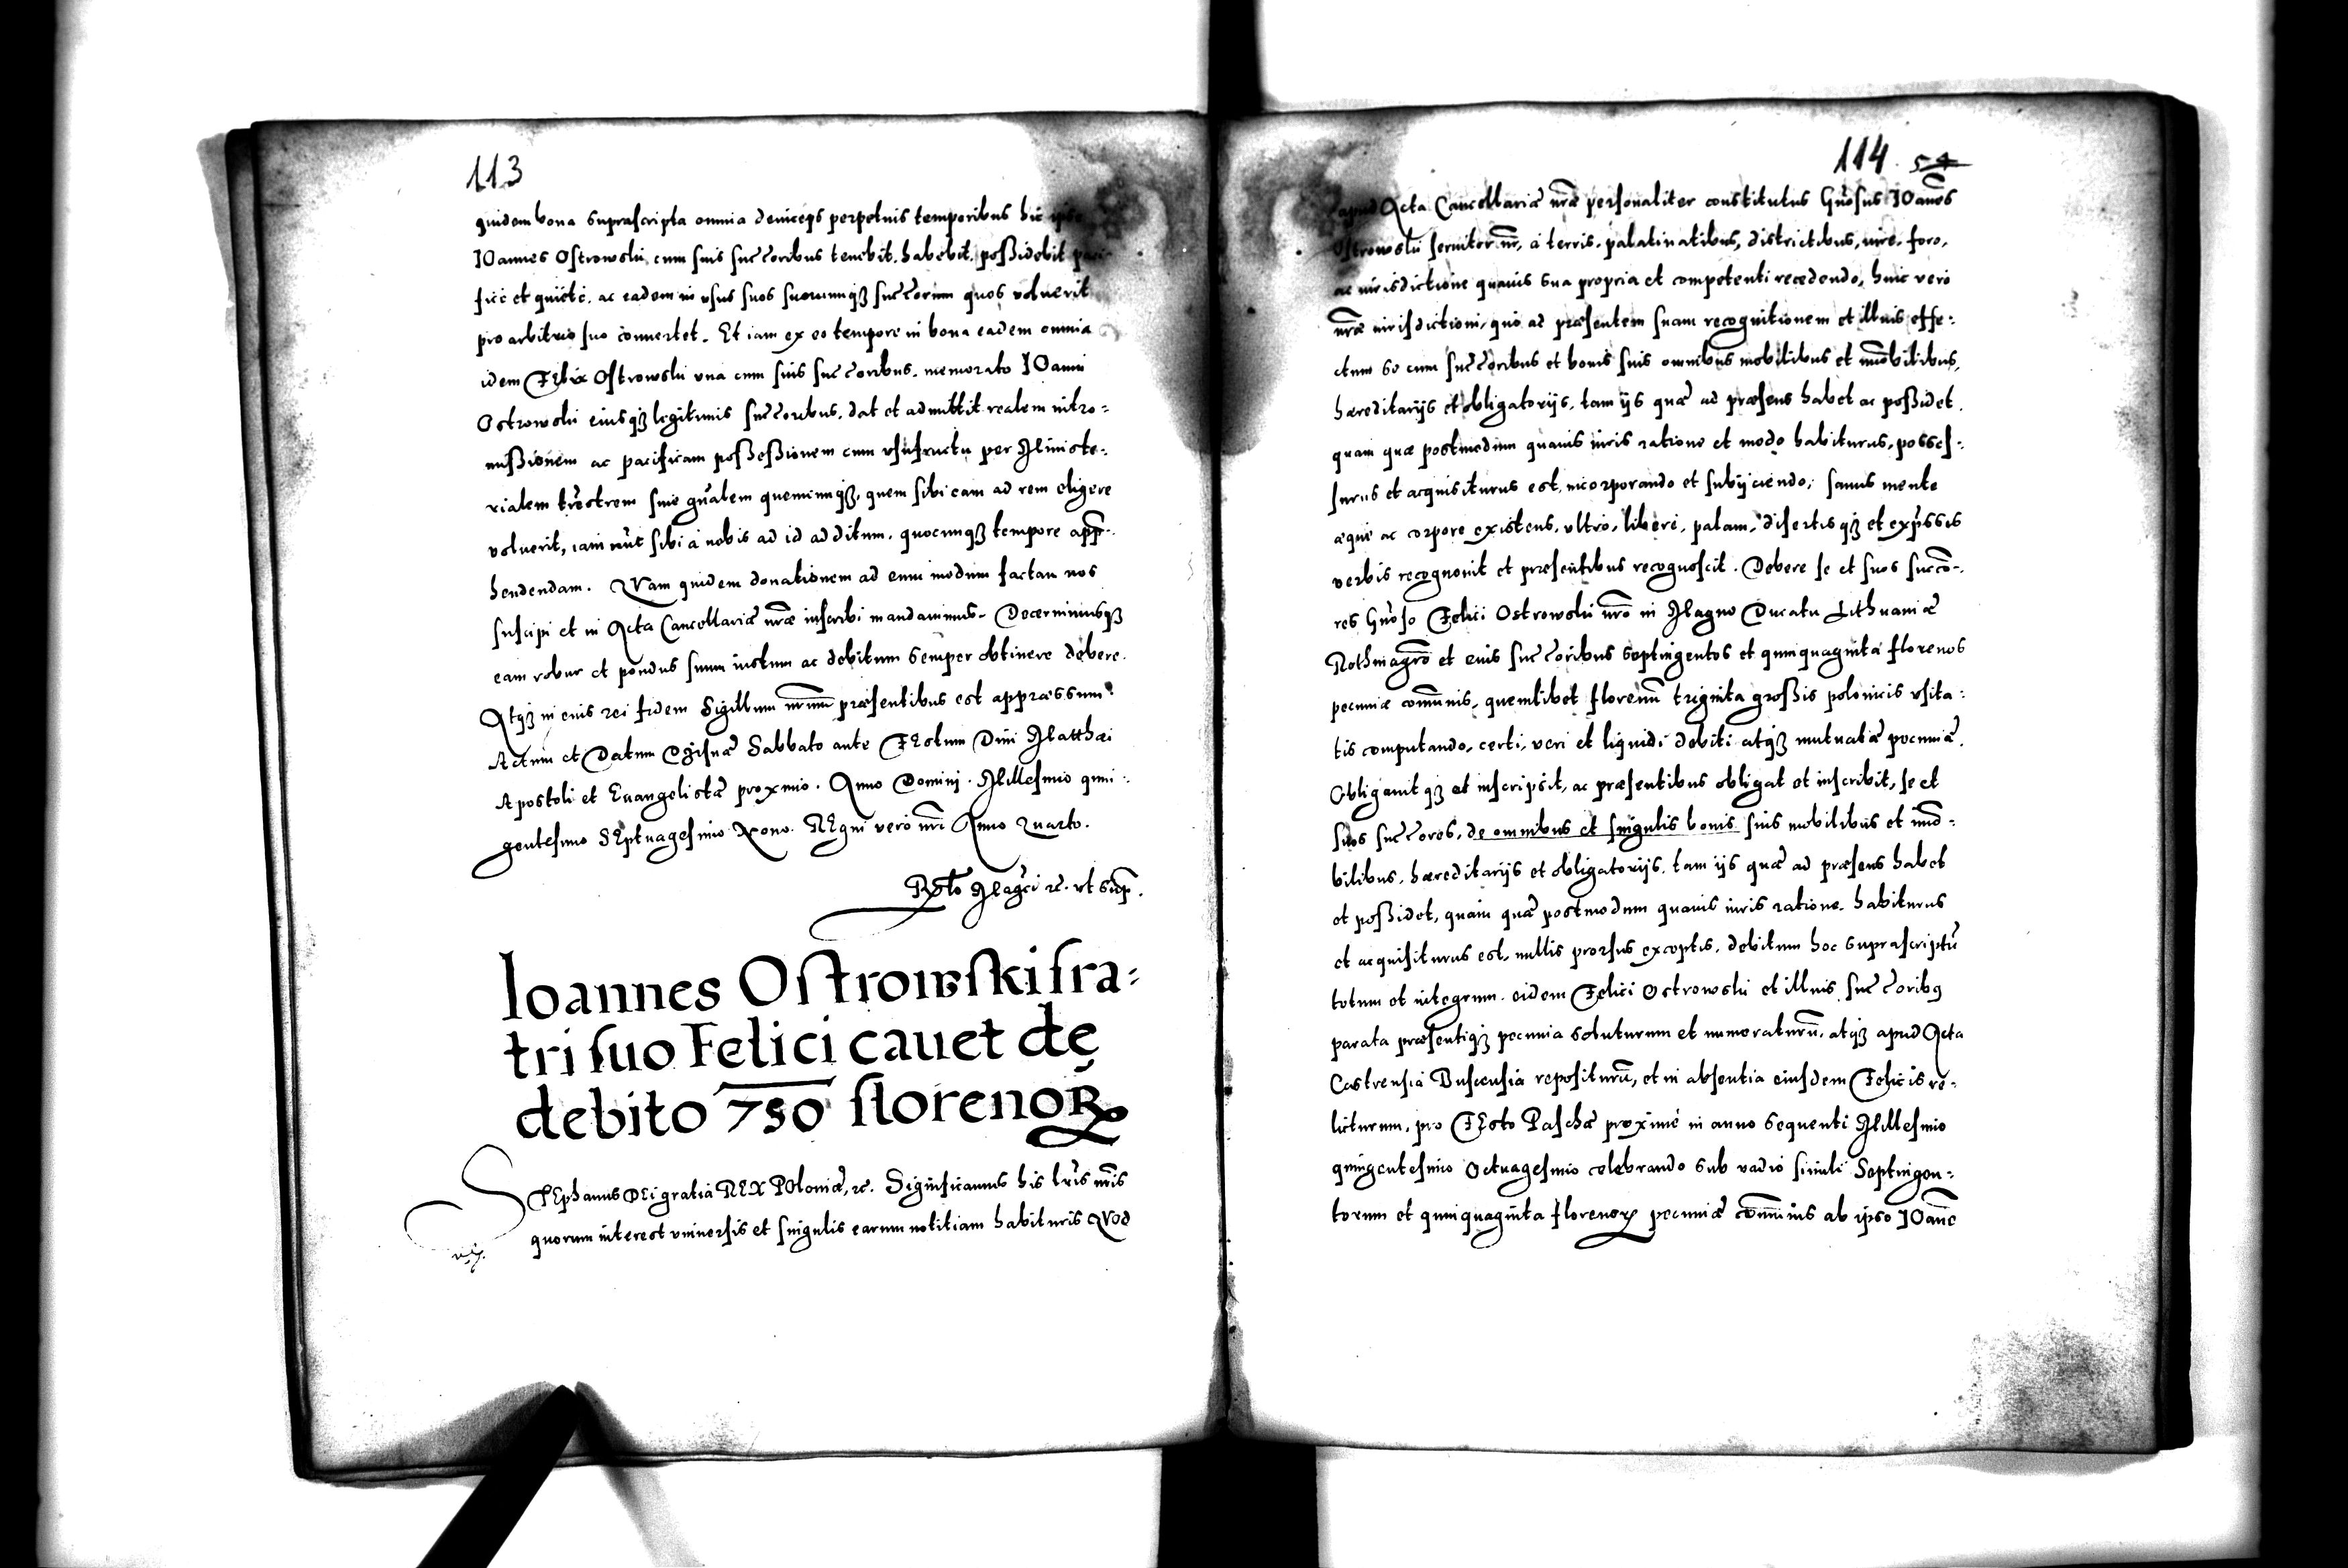 113
quidem bona suprascripta omnia deinceps perpetuis temporibus hic ipse
IOannes Ostrowski cum suis succoribus tenebit, habebit, possidebit paci-
ficè et quietè, ac eadem in vsus suos suorumqȝ succorum quos voluerit
pro arbitrio suo conuertet. Et iam ex eo tempore in bona eadem omnia
idem Felix Ostrowski vna cum suis succoribus, memorato IOanni
Ostrowski eiusqȝ legitimis succoribus, dat et admittit realem intro=
missionem ac pacificam possessionem cum vsufructu per Ministe-
rialem trrestrem siue gnalem quemcunqȝ, quem sibi eam ad rem eligere
voluerit, iam nunc sibi à nobis ad id additum, quocunqȝ tempore appr-
hendendam. QVam quidem donationem ad eum modum factam nos
suscipi et in Acta Cancellariæ nræ inscribi mandauimus. Decernimusqȝ
eam robur et pondus suum iustum ac debitum semper obtinere debere.
Atqȝ in eius rei fidem Sigillum nrum præsentibus est appræssum.
Actum et Datum Sabbato ante FEstum Diui Matthæi
Apostoli et Euangelistæ proximo. Anno Domini Millesimo quin-
gentesimo SEptuagesimo Nono. REgni vero nri Anno Quarto.
Relatio Magci ec. vt sup.
Ioannes Ostrowski fra=
tri suo Felici cauet de
debito 750 florenoꝝ
STEphanus DEi gratia REX POloniæ, ec. Significamus his lris nris
quorum interest vniuersis et singulis earum notitiam habituris QVod
114 54
apud Acta Cancellariæ nræ personaliter constitutus Gnosus IOannes
Ostrowski seruitor nr, à terris, palatinatibus, districtibus, iure, foro,
ac iurisdictione quauis sua propria et competenti recedendo, huic verò
nræ iurisdictioni, quò ad præsentem suam recognitionem et illius effe=
ctum se cum succoribus et bonis suis omnibus mobilibus et imobilibus,
hæreditarijs et obligatorijs, tam ijs quæ ad præsens habet ac possidet,
quam quæ postmodum quauis iuris ratione et modo habiturus, posses=
surus et acquisiturus est, incorporando et subijciendo, sanus mente
æquè ac corpore existens, vltrò, liberè, palam, disertisqȝ et exprssis
verbis recognouit et præsentibus recognoscit. Debere se et suos succo-
res Gnoso Felici Ostrowski nro in Magno Ducatu Lithuaniæ
Rothmagro et eius succoribus septingentos et quinquaginta florenos
pecuniæ comunis, quemlibet florenum triginta grossis polonicis vsita=
tis computando, certi, veri et liquidi debiti atqȝ mutuatæ pecuniæ.
Obligauitqȝ et inscripsit, ac præsentibus obligat et inscribit, se et
suos succores, de omnibus et singulis bonis suis mobilibus et imo-
bilibus, hæreditarijs et obligatorijs, tam ijs quæ ad præsens habet
et possidet, quàm quæ postmodum quauis iuris ratione habiturus
et acquisiturus est, nullis prorsus exceptis, debitum hoc suprascriptu
totum et integrum eidem Felici Ostrowski et illius succoribꝰ
parata præsentiqȝ pecunia soluturum et numeraturu, atqȝ apud Acta
Castrensia Buscensia repositurum, et in absentia eiusdem Felicis re-
licturum, pro FEsto Paschæ proximè in anno sequenti Millesimo
quingentesimo Octuagesimo celebrando sub vadio simili Septingen-
torum et quinquaginta florenoꝝ pecuniæ comunis ab ipso IOane